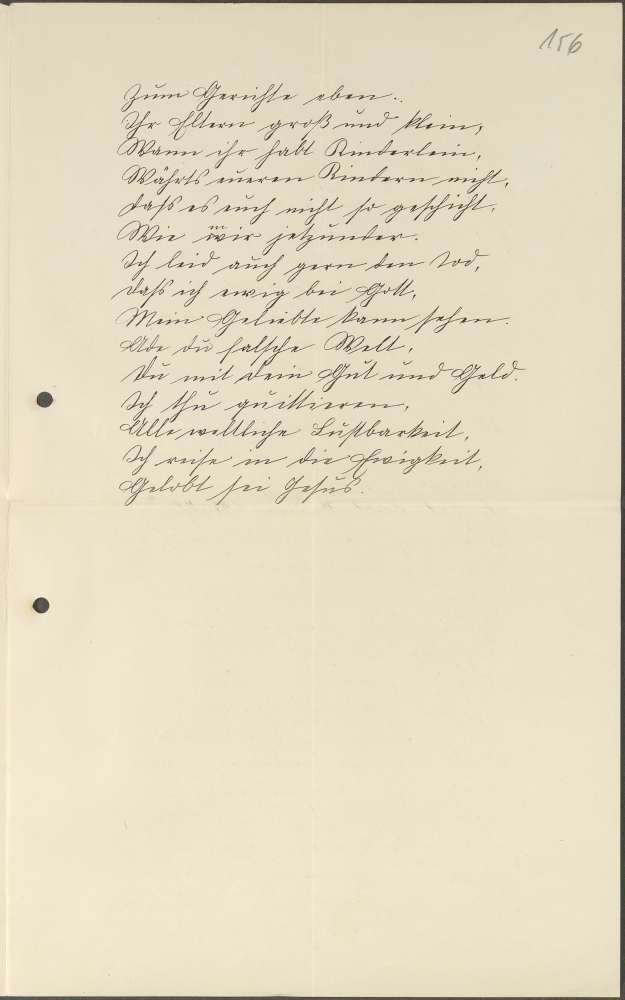 156
Zum Gerichte eben.
Ihr Eltern groß und klein,
Wann ihr habt Kinderlein,
Währts eueren Kindern nicht,
Dass es euch nicht so geschicht,
Wie mir jetzunder.
Ich leid auch gern den Tod,
Dass ich ewig bei Gott,
Mein Geliebte kann sehen.
Ade du falsche Welt,
Du mit dein Gut und Geld.
Ich thu quittieren,
Alle weltliche Lustbarkeit,
Ich reise in die Ewigkeit,
Gelobt sei Jesus.